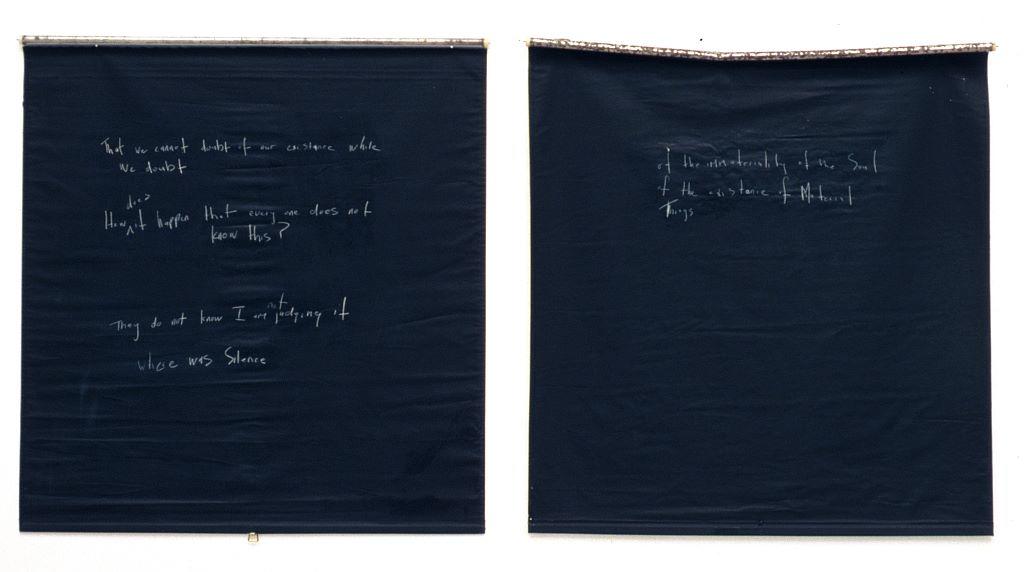 That we cannot doubt of our existance while
we doubt
does
How it happen that every one does not
know this?
not
They do not know I am judging it
whose was Silence
of the immateriality of the Soul
of the existance of Material
Things